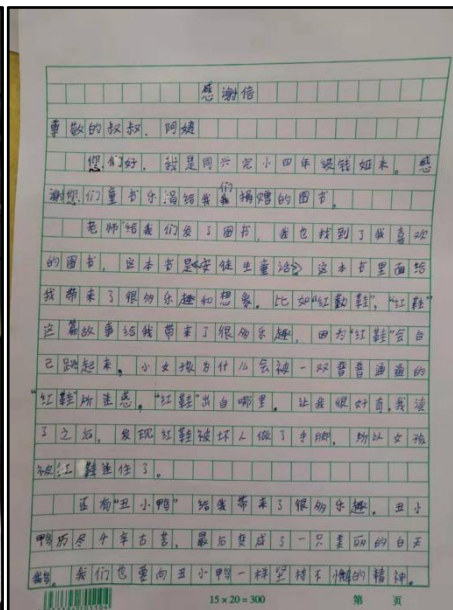 感谢信
尊敬的叔叔、阿姨
您们好。我是同兴完小四年级钱姐来。感
谢您们童书乐涓给我们捐赠的图书。
老师给我们发了图书，我也找到了我喜欢
的图书。这本书是《安徒生童话》这本书里面给
我带来了很多乐趣和想象。比如“红勤鞋”，“红鞋”
这篇故事给我带来了很多乐趣，因为“红鞋”会自
己跳起来。小女孩为什么会被一双普普通通的
“红鞋”所迷惑。“红鞋”出自哪里。让我很好奇，我读
了之后，发现红鞋被坏人做了手脚。所以女孩
被红鞋迷住了。
还有“丑小鸭”给我带来了很多乐趣。丑小
鸭历尽千辛古苦，最后变成了一只美丽的白天
鹅。我们也要向丑小鸭一样坚持不懈的精神。
15×20=300 第 页